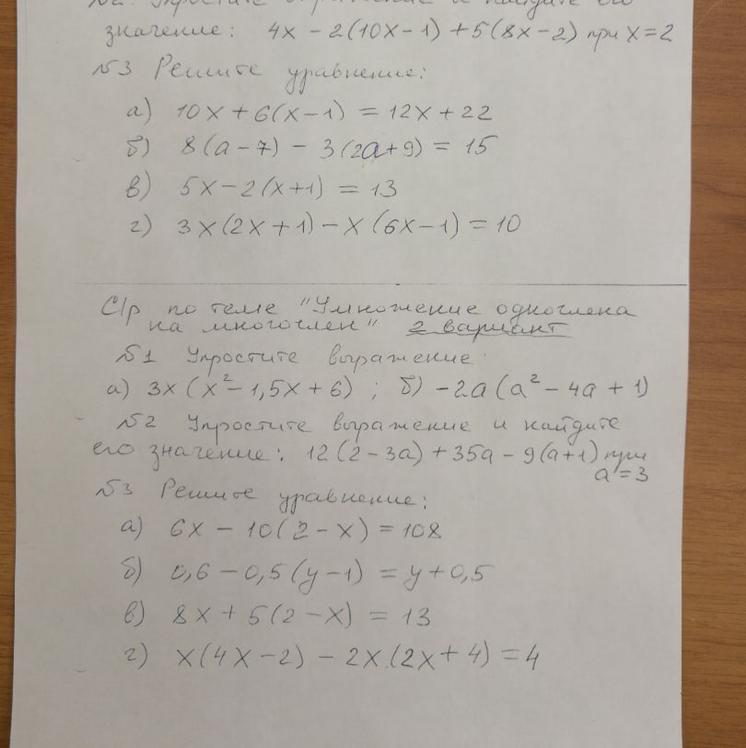 №2. Упростите выражение и найдите его
значение: 4x - 2(10x-1) + 5(8x-2) при x=2
№3 Решите уравнение:
а) 10x + 6(x-1) = 12x + 22
б) 8(a-7) - 3(2a+9) = 15
в) 5x - 2(x+1) = 13
г) 3x(2x+1) - x(6x-1) = 10
С/р по теме "Умножение одночлена
на многочлен" 2 вариант
№1 Упростите выражение:
а) 3x(x² - 1,5x + 6) ; б) -2a(a² - 4a + 1)
№2 Упростите выражение и найдите
его значение: 12(2-3a) + 35a - 9(a+1) при
a=3
№3 Решите уравнение:
а) 6x - 10(2-x) = 108
б) 0,6 - 0,5(y-1) = y + 0,5
в) 8x + 5(2-x) = 13
г) x(4x-2) - 2x(2x+4) = 4